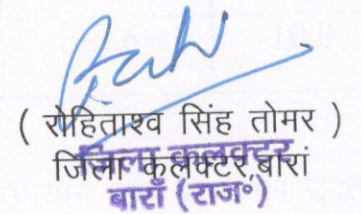 ( रोहिताश्व सिंह तोमर )
जिला कलक्टर,बारां
जिला कलक्टर
बाराँ (राज॰)